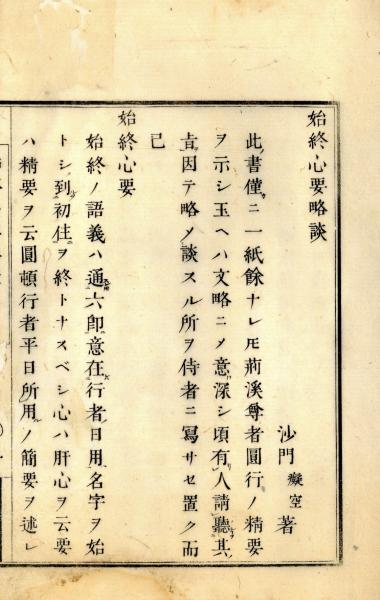 始終心要略談
沙門 癡空 著
此書僅ニ一紙餘ナレ𪜈荊溪尊者圓行ノ精要
ヲ示シ玉ヘハ文略ニメ意深シ頃有人請聽其
旨因テ略メ談スル所ヲ侍者ニ寫サセ置ク而
已
始終心要
始終ノ語義ハ通六即意在行者日用名字ヲ始
トシ到初住ヲ終トナスベシ心ハ肝心ヲ云要
ハ精要ヲ云圓頓行者平日所用ノ簡要ヲ述レ